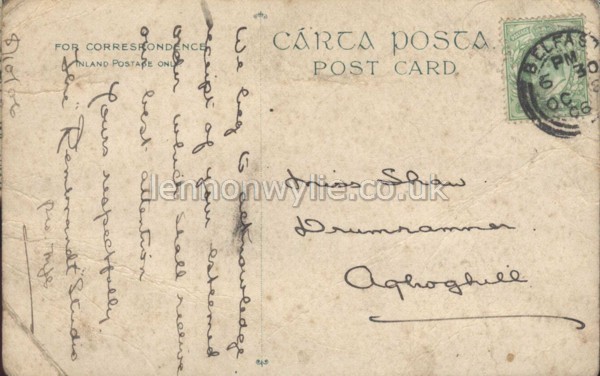 FOR CORRESPONDENCE
INLAND POSTAGE ONLY
CÁRTA POSTA
POST CARD
BELFAST
PM
6
OC
06
8/10/06
We beg to acknowledge
receipt of your esteemed
order which shall receive
our best attention
Yours respectfully
The "Rembrandt" Studio
Miss Shaw
Drumrammer
Aghoghill
lennonwylie.co.uk